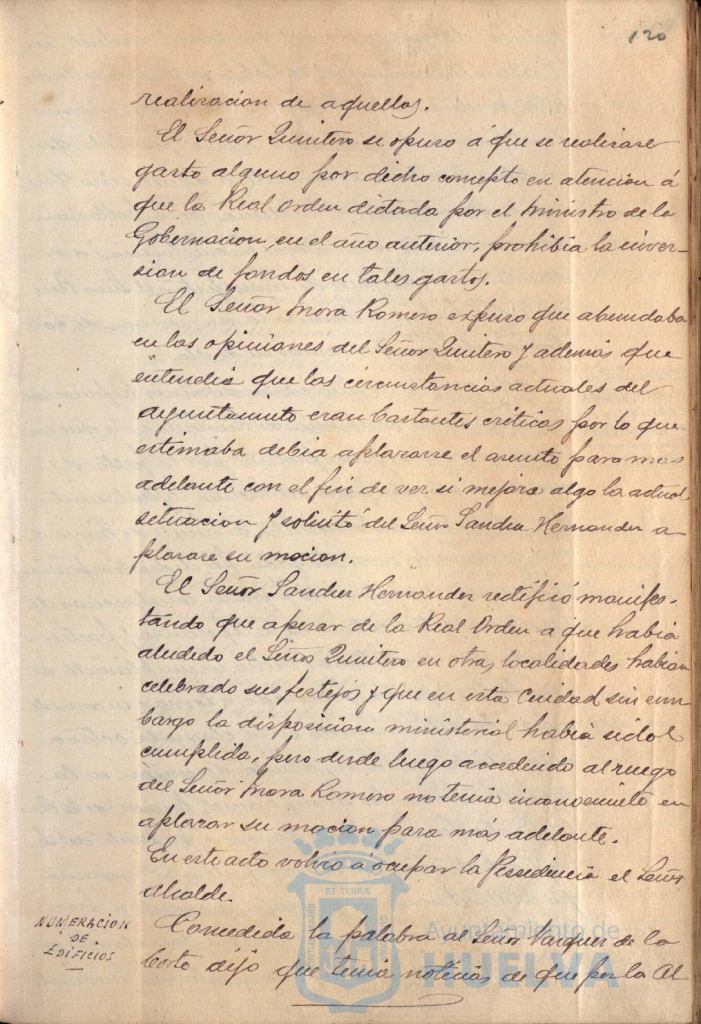 120
realizacion de aquellos.
El Señor Quintero se opuso á que se realizase
gasto alguno por dicho concepto en atencion á
que la Real Orden dictada por el Ministro de la
Gobernacion, en el año anterior, prohibia la inver-
sion de fondos en tales gastos.
El Señor Mora Romero expuso que abundaba
en las opiniones del Señor Quintero y además que
entendia que las circunstancias actuales del
Ayuntamiento eran bastantes criticas por lo que
estimaba debia aplazarse el asunto para mas
adelante con el fin de ver si mejora algo la actual
situacion y solicitó del Señor Sanchez Hernandez a-
plazase su mocion.
El Señor Sanchez Hernandez rectificó manifes-
tando que apesar de la Real Orden a que habia
aludido el Señor Quintero en otras localidades habian
celebrado sus festejos y que en esta Ciudad sin em-
bargo la disposicion ministerial habia sido
cumplida, pero desde luego accediendo al ruego
del Señor Mora Romero no tenia inconveniente en
aplazar su mocion para más adelante.
En este acto volvio á ocupar la Presidencia el Señor
Alcalde.
NUMERACION
DE
EDIFICIOS
Concedida la palabra al Señor Vazquez de la
Corte dijo que tenia noticias de que por la Al
ET TERRA
Ayuntamiento de
HUELVA